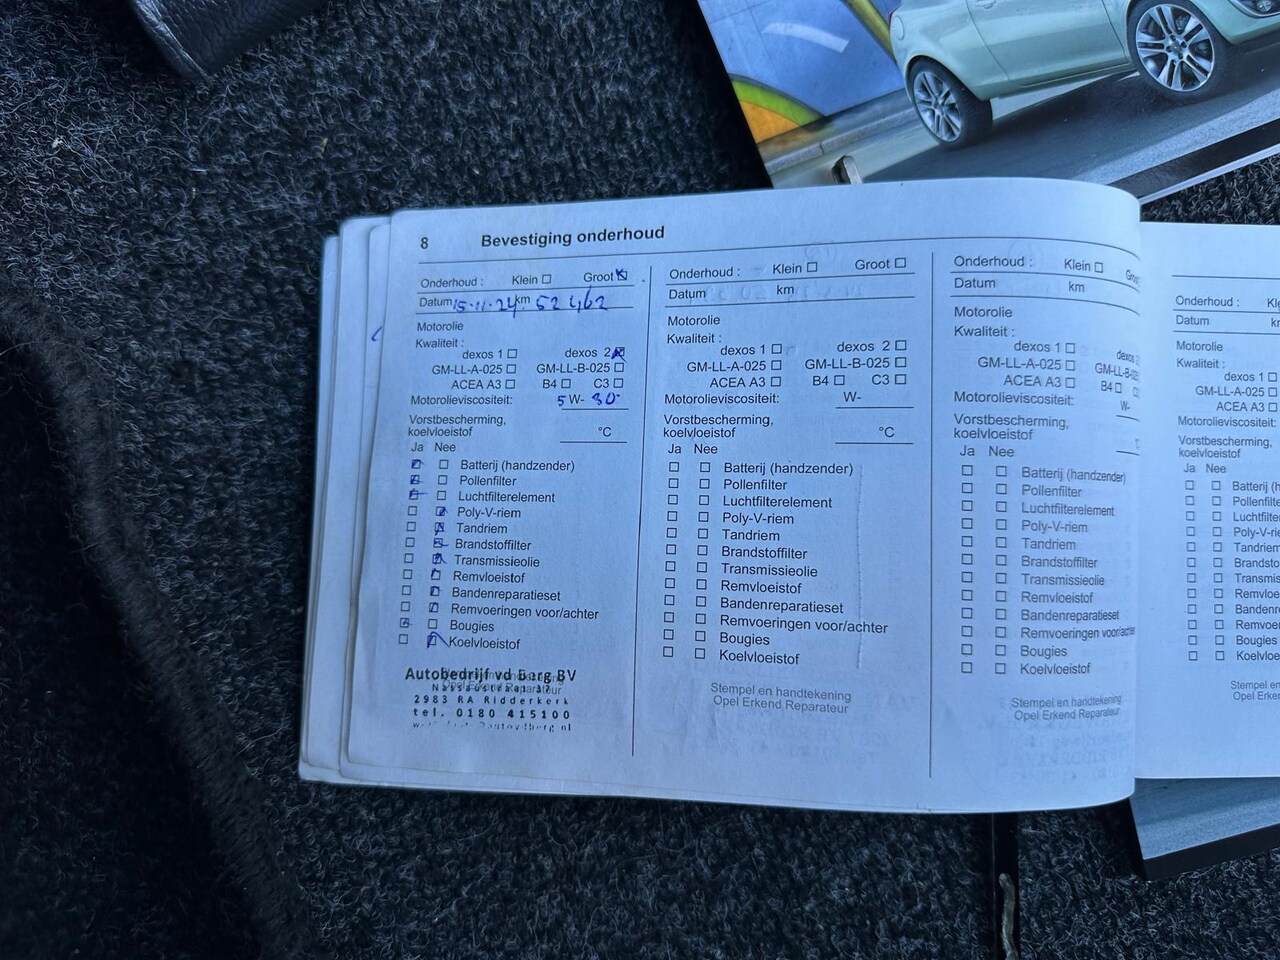 8 Bevestiging onderhoud
Onderhoud : Klein ☐ Groot ☒
Datum 15-11-24 km 52 462
Motorolie
Kwaliteit :
dexos 1 ☐ dexos 2 ☒
GM-LL-A-025 ☐ GM-LL-B-025 ☐
ACEA A3 ☐ B4 ☐ C3 ☐
Motorolieviscositeit: 5 W- 30
Vorstbescherming,
koelvloeistof °C
Ja Nee
Batterij (handzender)
Pollenfilter
Luchtfilterelement
Poly-V-riem
Tandriem
Brandstoffilter
Transmissieolie
Remvloeistof
Bandenreparatieset
Remvoeringen voor/achter
Bougies
Koelvloeistof
Autobedrijf vd Berg BV
2983 RA Ridderkerk
tel. 0180 415100
Onderhoud : Klein ☐ Groot ☐
Datum km
Motorolie
Kwaliteit :
dexos 1 ☐ dexos 2 ☐
GM-LL-A-025 ☐ GM-LL-B-025 ☐
ACEA A3 ☐ B4 ☐ C3 ☐
Motorolieviscositeit: W-
Vorstbescherming,
koelvloeistof °C
Ja Nee
☐ ☐ Batterij (handzender)
☐ ☐ Pollenfilter
☐ ☐ Luchtfilterelement
☐ ☐ Poly-V-riem
☐ ☐ Tandriem
☐ ☐ Brandstoffilter
☐ ☐ Transmissieolie
☐ ☐ Remvloeistof
☐ ☐ Bandenreparatieset
☐ ☐ Remvoeringen voor/achter
☐ ☐ Bougies
☐ ☐ Koelvloeistof
Stempel en handtekening
Opel Erkend Reparateur
Onderhoud : Klein ☐ Groot
Datum km
Motorolie
Kwaliteit :
dexos 1 ☐ dexos
GM-LL-A-025 ☐ GM-LL-B-025
ACEA A3 ☐ B4 ☐ C3
Motorolieviscositeit: W-
Vorstbescherming,
koelvloeistof
Ja Nee
☐ ☐ Batterij (handzender)
☐ ☐ Pollenfilter
☐ ☐ Luchtfilterelement
☐ ☐ Poly-V-riem
☐ ☐ Tandriem
☐ ☐ Brandstoffilter
☐ ☐ Transmissieolie
☐ ☐ Remvloeistof
☐ ☐ Bandenreparatieset
☐ ☐ Remvoeringen voor/achter
☐ ☐ Bougies
☐ ☐ Koelvloeistof
Stempel en handtekening
Opel Erkend Reparateur
Onderhoud :
Datum
Motorolie
Kwaliteit :
dexos 1 ☐
GM-LL-A-025 ☐
ACEA A3 ☐
Motorolieviscositeit:
Vorstbescherming,
koelvloeistof
Ja Nee
☐ ☐ Batterij (h
☐ ☐ Pollenfilte
☐ ☐ Luchtfilter
☐ ☐ Poly-V-rie
☐ ☐ Tandriem
☐ ☐ Brandsto
☐ ☐ Transmis
☐ ☐ Remvloe
☐ ☐ Bandenr
☐ ☐ Remvoer
☐ ☐ Bougies
☐ ☐ Koelvloei
Stempel en
Opel Erkend